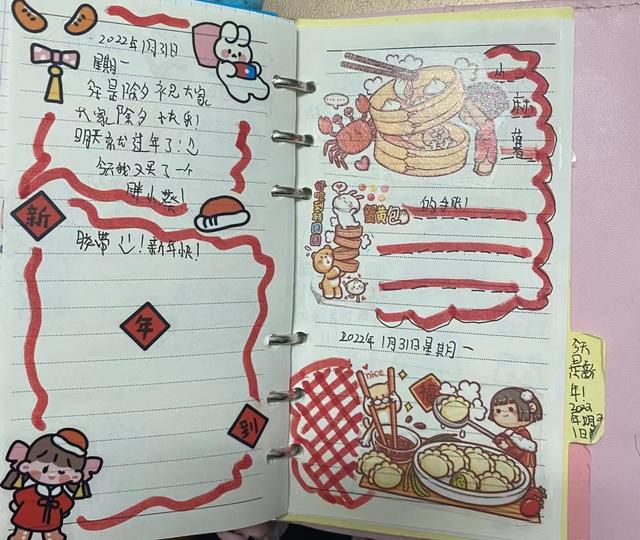 2022年1月31日
星期一
今是除夕祝大家
大家除夕快乐!
明天就过年了!
给我又买了一个
胖小葵!
新
胶带!新年快!
年
到
小
麻
薯
蟹黄包
的手账!
2022年1月31日星期一
nice
福
今天
是新
年!
2022
年2月
1日